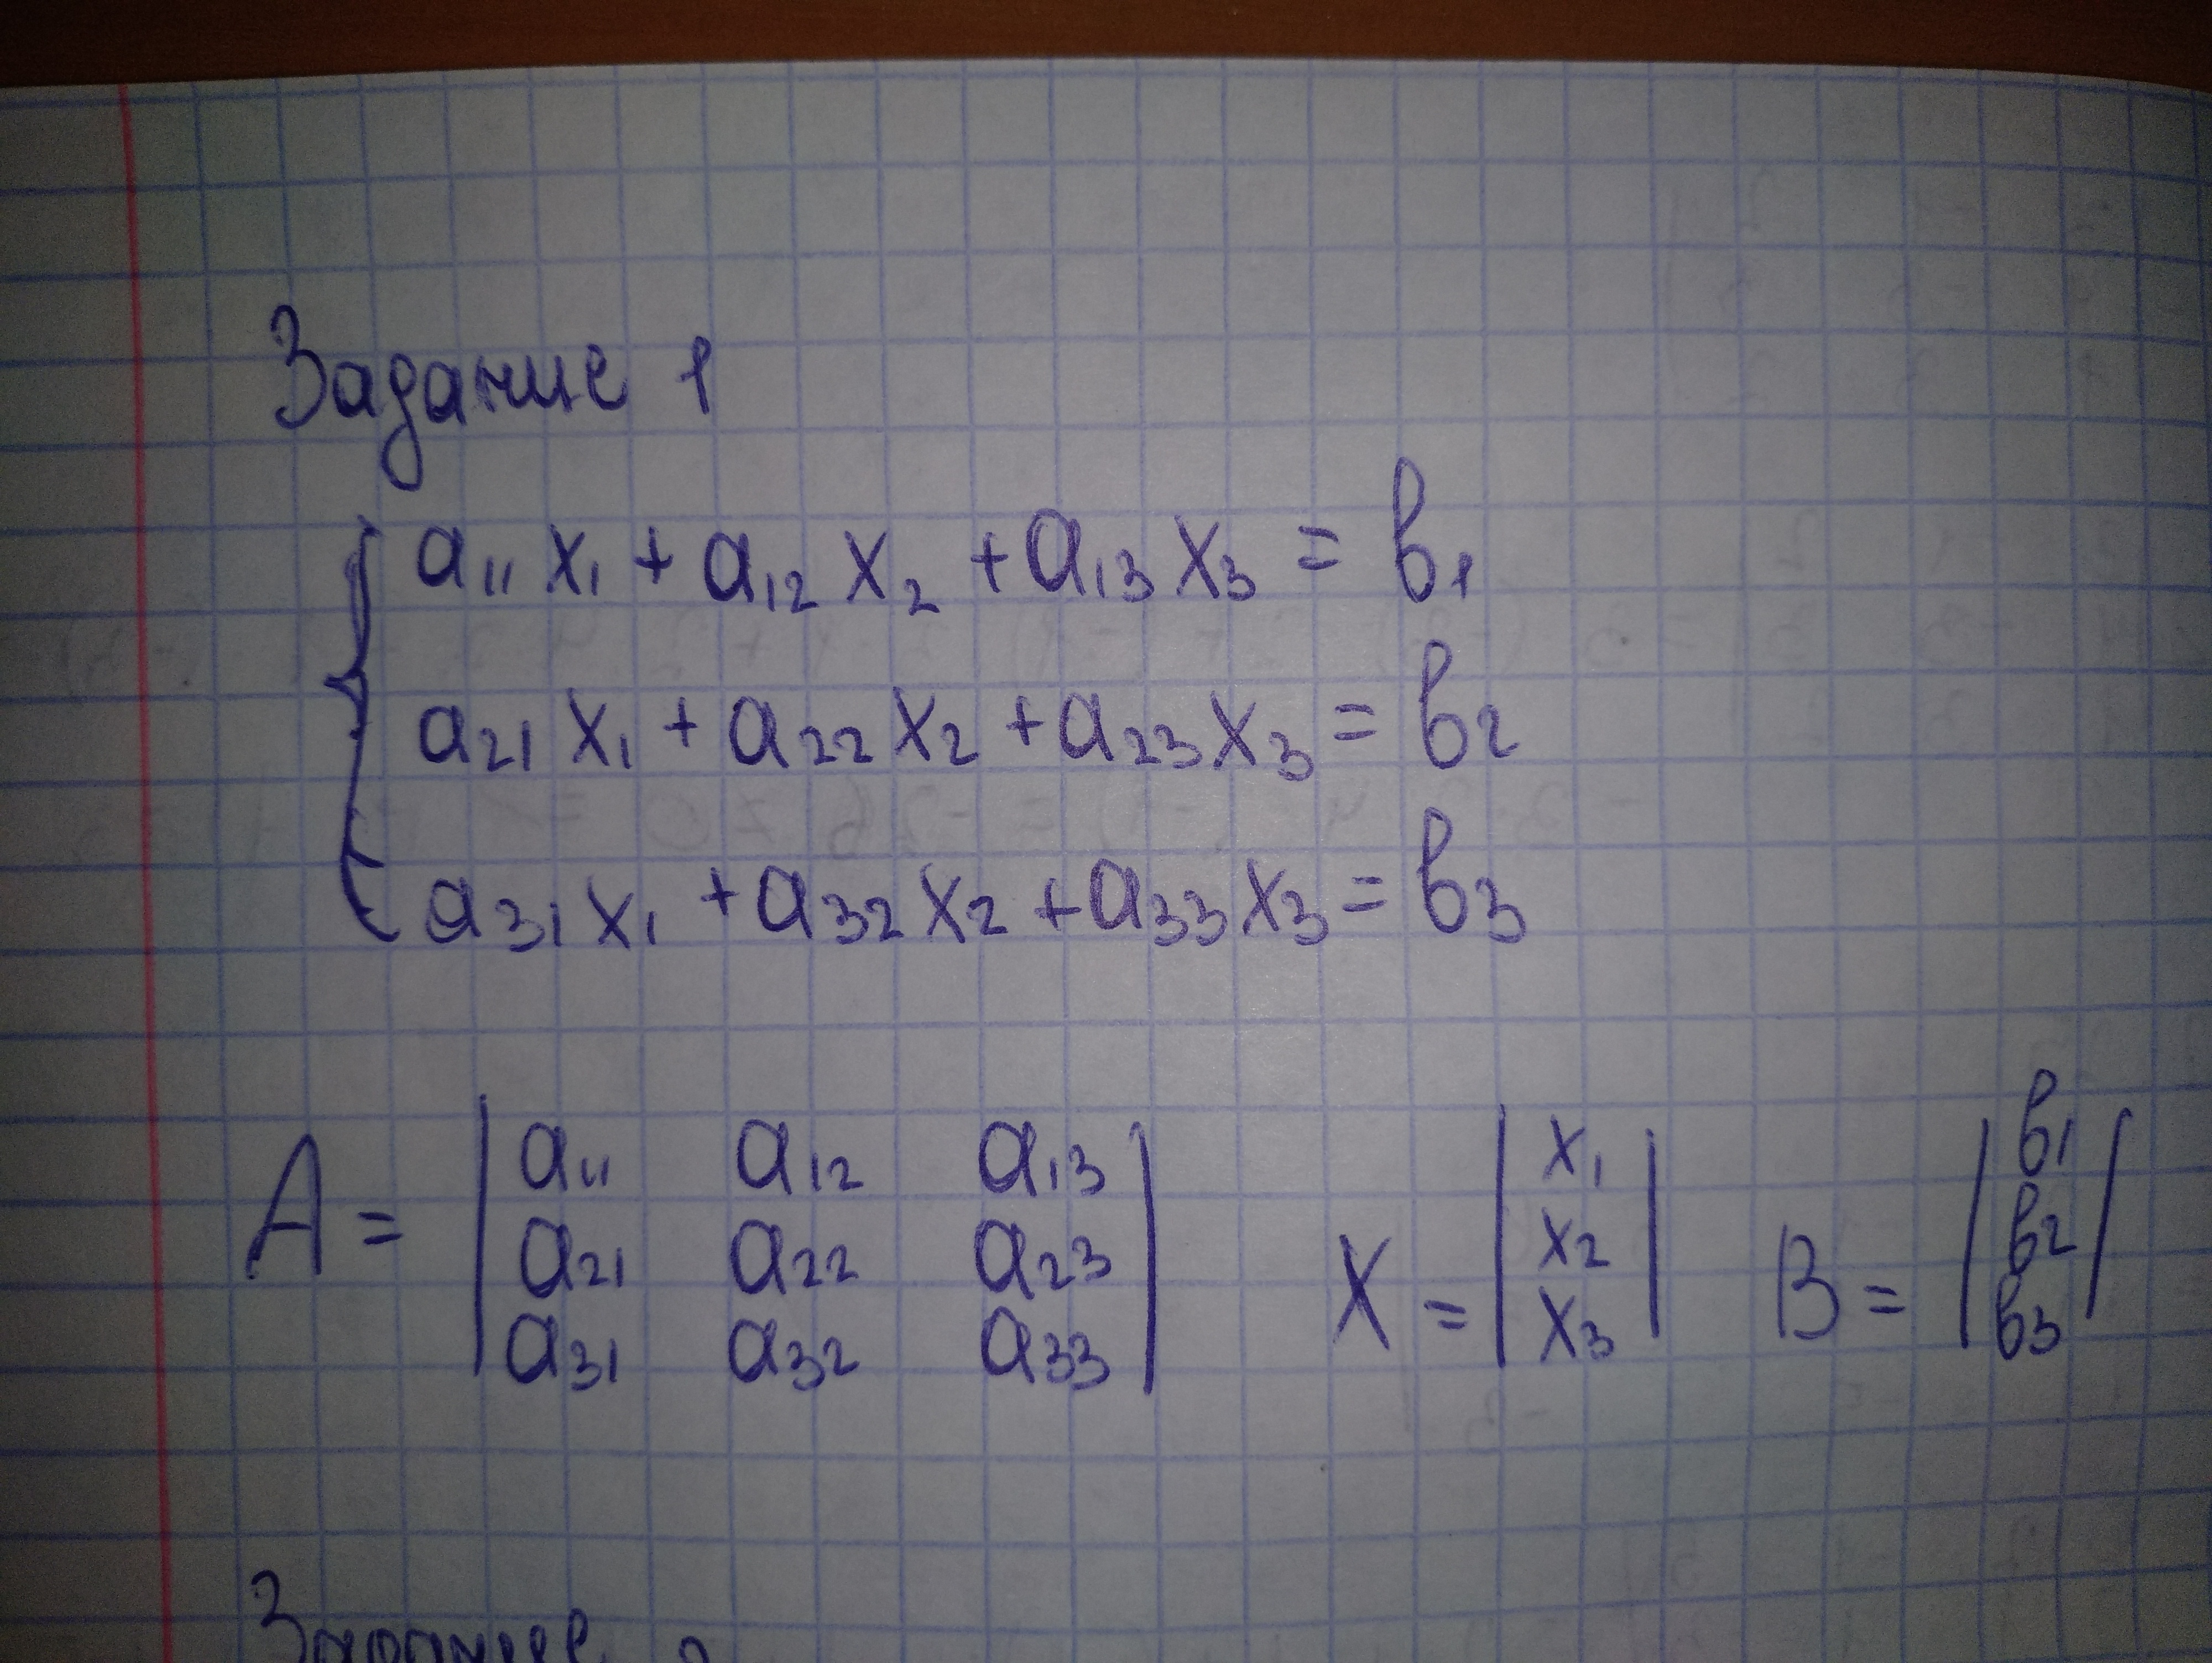 Задание 1
a₁₁ x₁ + a₁₂ x₂ + a₁₃ x₃ = b₁
a₂₁ x₁ + a₂₂ x₂ + a₂₃ x₃ = b₂
a₃₁ x₁ + a₃₂ x₂ + a₃₃ x₃ = b₃
A = | a₁₁ a₁₂ a₁₃ | X = | x₁ | B = | b₁ |
a₂₁ a₂₂ a₂₃ x₂ b₂
a₃₁ a₃₂ a₃₃ x₃ b₃
Задание